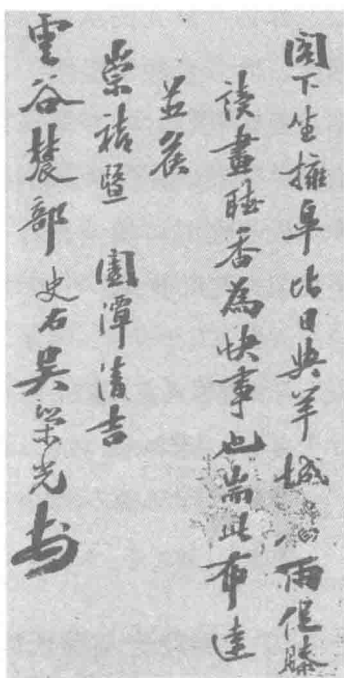 閣下坐擁皋比日與羊城雨促膝
讀畫聽香為快事也耑此布達
並候
崇暨 潭清吉
雲谷農部 吳榮光